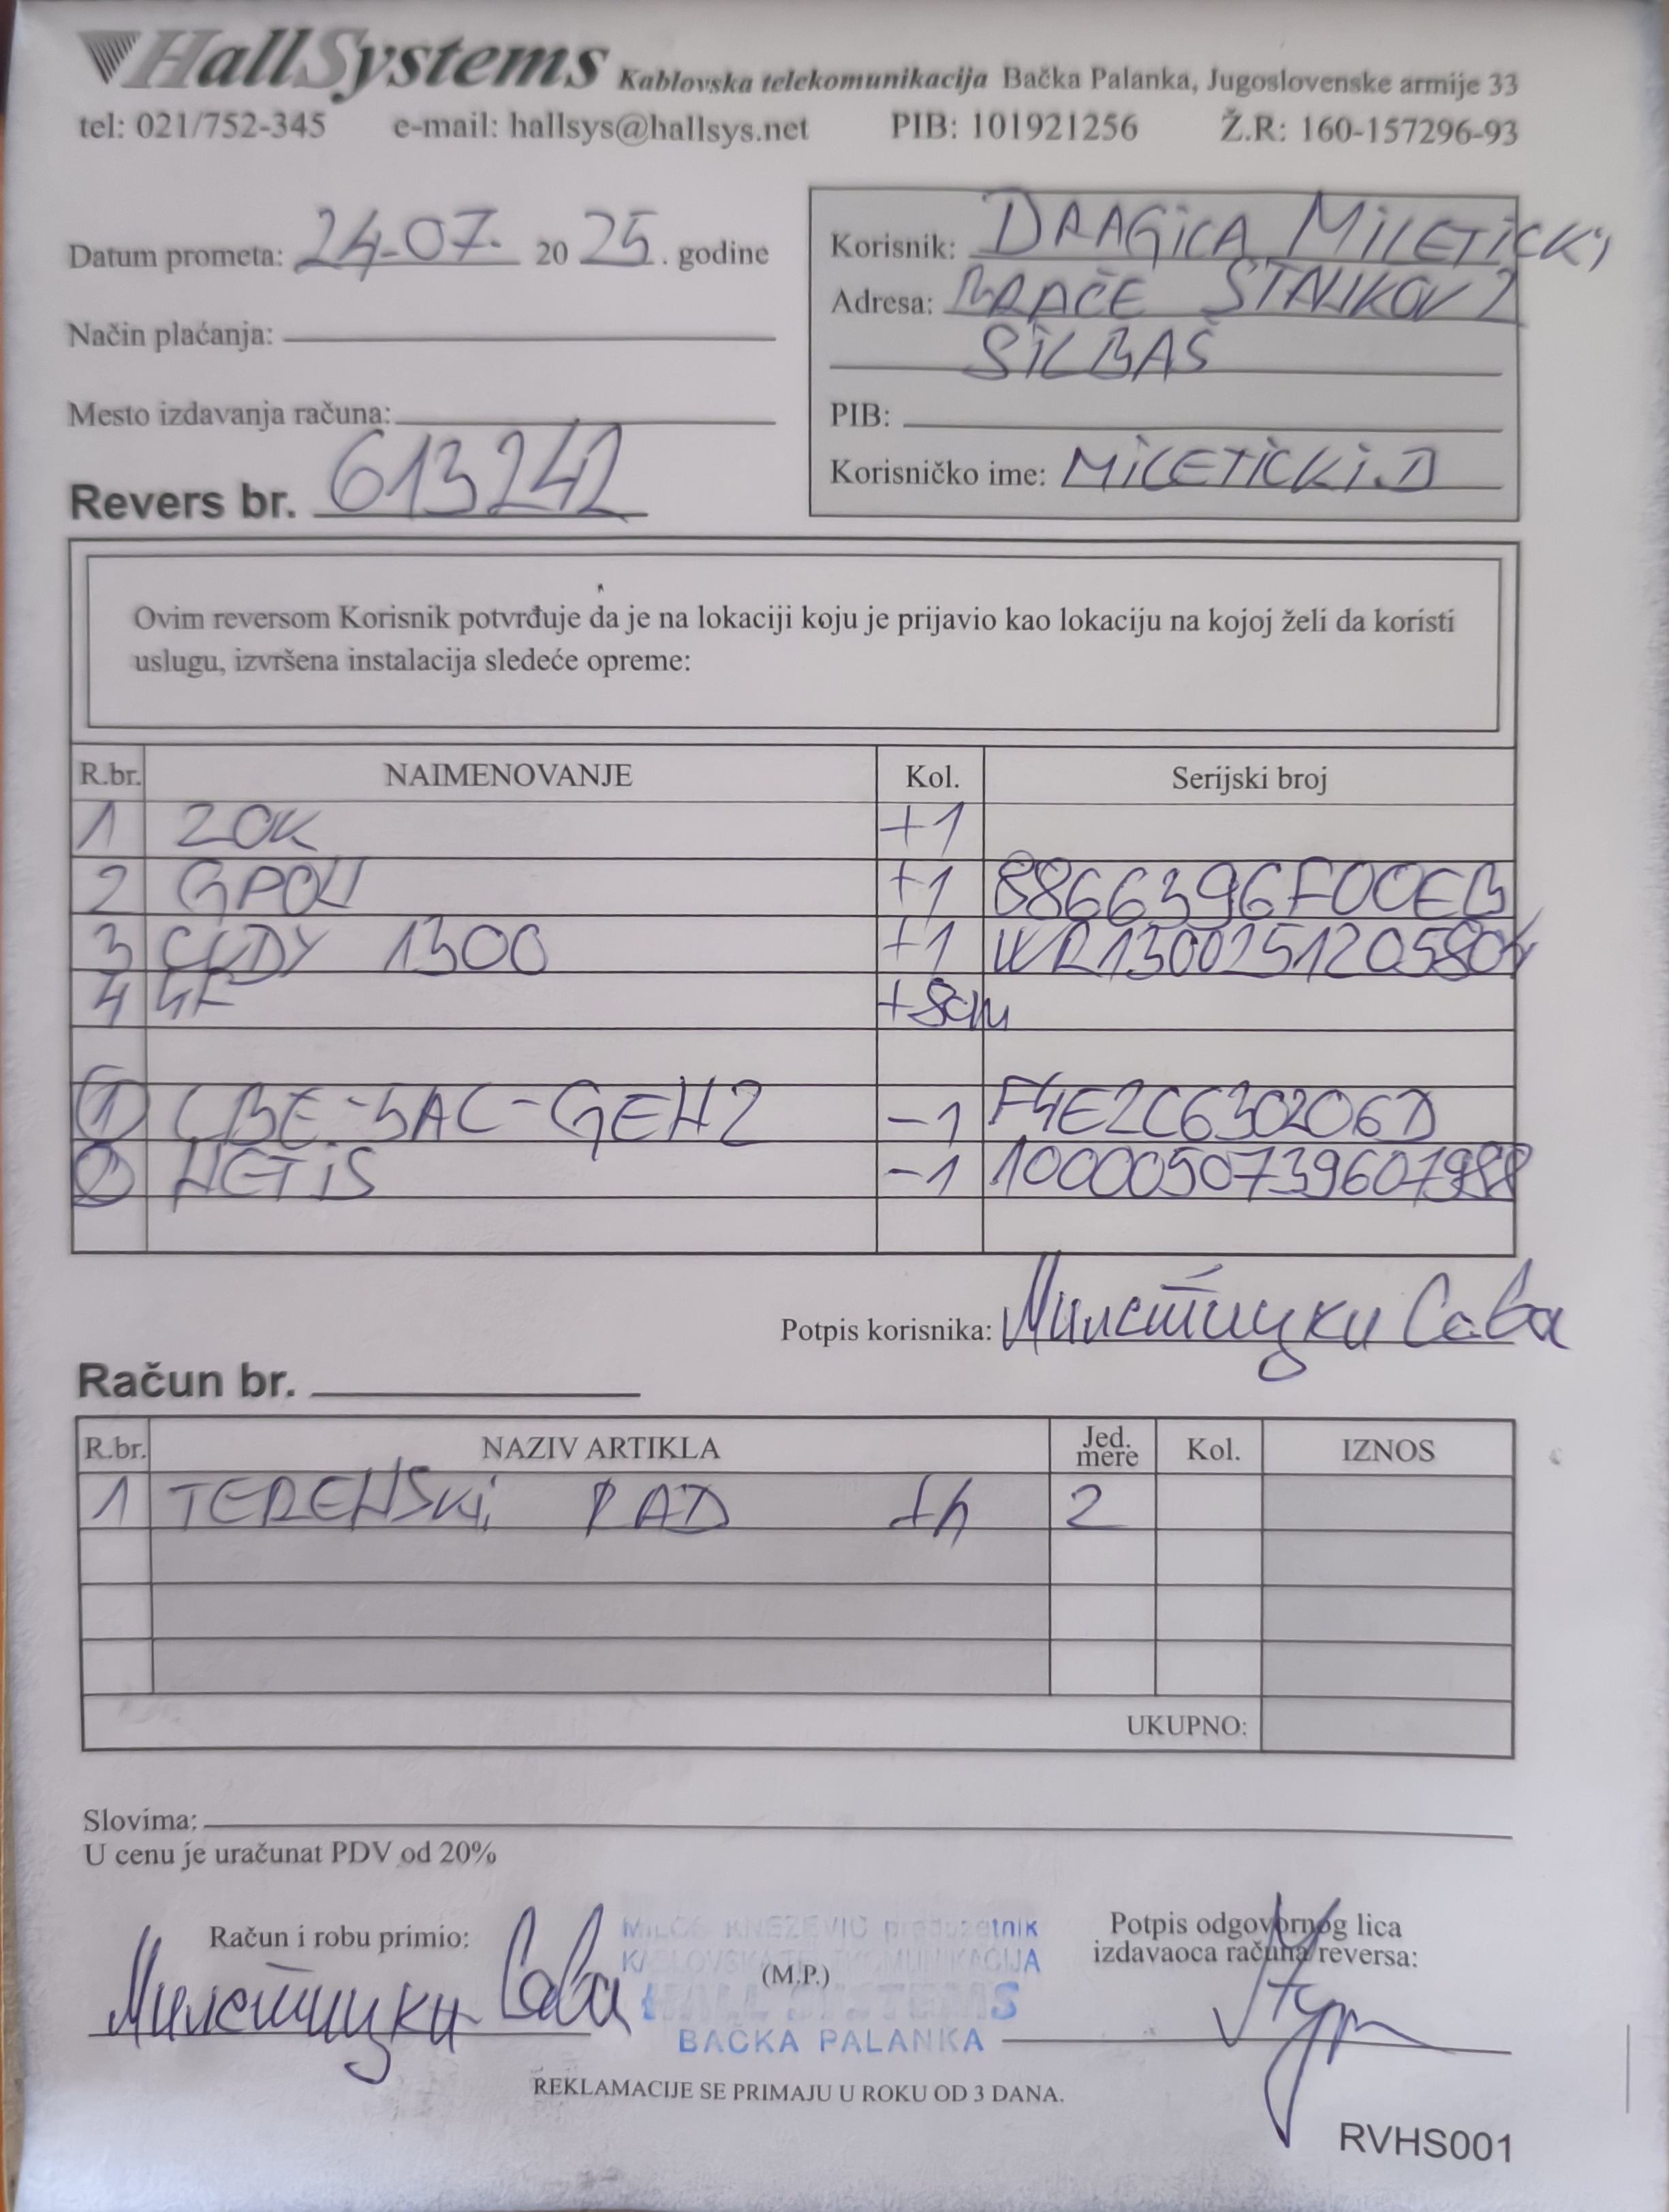 HallSystems Kablovska telekomunikacija Bačka Palanka, Jugoslovenske armije 33
tel: 021/752-345 e-mail: hallsys@hallsys.net PIB: 101921256 Ž.R: 160-157296-93
Datum prometa: 24.07. 2025. godine
Način plaćanja:
Mesto izdavanja računa:
Revers br. 613242
Korisnik: DRAGiCA MiLETiCKi
Adresa: BRAĆE
SiLBAŠ
PIB:
Korisničko ime: MiLETiCKi.D
Ovim reversom Korisnik potvrđuje da je na lokaciji koju je prijavio kao lokaciju na kojoj želi da koristi
uslugu, izvršena instalacija sledeće opreme:
R.br. NAIMENOVANJE Kol. Serijski broj
1 ZOK +1
2 GPON +1 8866396F00EB
3 CUDY 1300 +1
4
1 CBE-5AC-GEN2 -1 F4E2C630206D
2 NETiS -1
Potpis korisnika: Милетицки Сава
Račun br.
R.br. NAZIV ARTIKLA Jed. mere Kol. IZNOS
1 TERENSKi RAD 2
UKUPNO:
Slovima:
U cenu je uračunat PDV od 20%
Račun i robu primio:
Милетицки Сава
MILOŠ KNEŽEVIĆ preduzetnik
KABLOVSKA TELEKOMUNIKACIJA
(M.P.)
HALL SYSTEMS
BAČKA PALANKA
Potpis odgovornog lica
izdavaoca računa/reversa:
REKLAMACIJE SE PRIMAJU U ROKU OD 3 DANA.
RVHS001